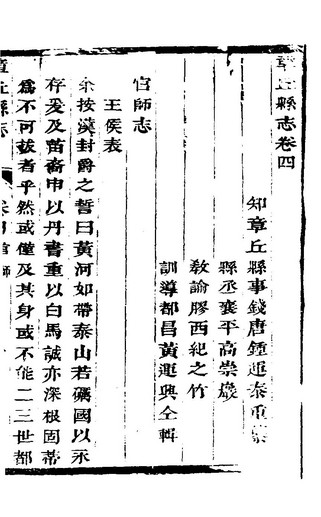 章丘縣志卷四
知章丘縣事錢唐鍾運泰重纂
縣丞襄平高崇巖
敎諭膠西紀之竹
訓導都昌黃運興仝輯
官師志
王侯表
余按漢封爵之誓曰黃河如帶泰山若礪國以永
存爰及苗裔申以丹書重以白馬誠亦深根固蒂
爲不可拔者乎然或僅及其身或不能二三世都
章丘縣志